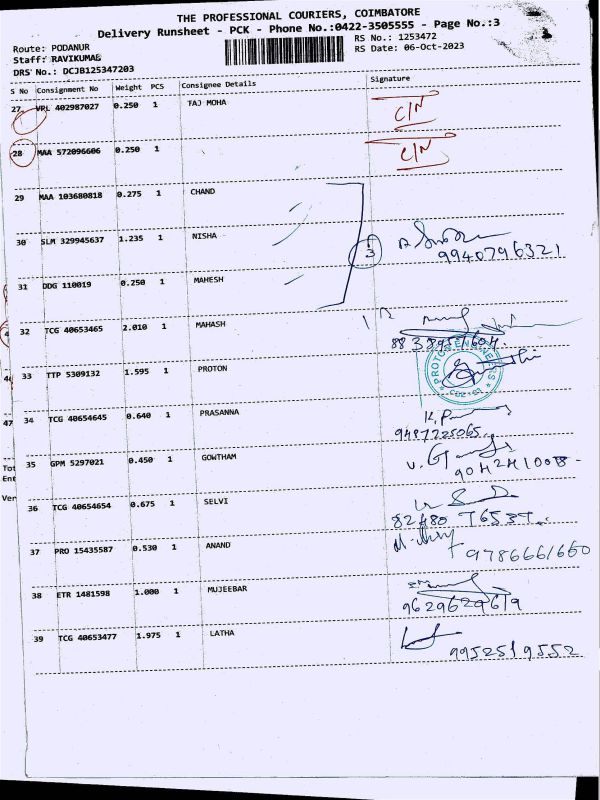 THE PROFESSIONAL COURIERS, COIMBATORE
Delivery Runsheet - PCK - Phone No.:0422-3505555 - Page No.:3
Route: PODANUR
RS No.: 1253472
Staff: RAVIKUMAR
RS Date: 06-Oct-2023
DRS No.: DCJB125347203
S No Consignment No Weight PCS Consignee Details Signature
27 VRL 402987027 0.250 1 TAJ MOHA C/N
28 MAA 572096606 0.250 1 C/N
29 MAA 103680818 0.275 1 CHAND
30 SLM 329945637 1.235 1 NISHA 3
9940796321
31 DDG 110019 0.250 1 MAHESH
32 TCG 40653465 2.010 1 MAHASH
33 TTP 5309132 1.595 1 PROTON
34 TCG 40654645 0.640 1 PRASANNA
9487225065
35 GPM 5297021 0.450 1 GOWTHAM
36 TCG 40654654 0.675 1 SELVI
82480 76537
37 PRO 15435587 0.530 1 ANAND
9786661650
38 ETR 1481598 1.000 1 MUJEEBAR
9629629619
39 TCG 40653477 1.975 1 LATHA
9952519552
47
Tot
Ent
Ver